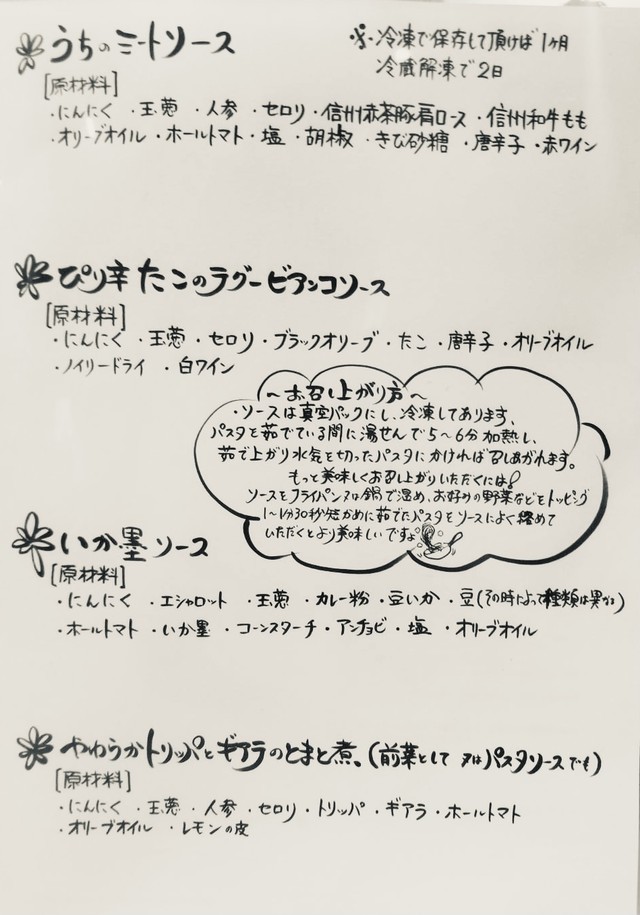 うちのミートソース
・冷凍で保存して頂けば1ヶ月
冷蔵解凍で2日
[原材料]
・にんにく ・玉葱 ・人参 ・セロリ ・信州赤茶豚肩ロース ・信州和牛もも
・オリーブオイル ・ホールトマト ・塩 ・胡椒 ・きび砂糖 ・唐辛子 ・赤ワイン
ぴり辛たこのラグービアンコソース
[原材料]
・にんにく ・玉葱 ・セロリ ・ブラックオリーブ ・たこ ・唐辛子 ・オリーブオイル
・ノイリードライ ・白ワイン
〜お召し上がり方〜
・ソースは真空パックにし、冷凍してあります、
パスタを茹でている間に湯せんで5〜6分加熱し、
茹で上がり水気を切ったパスタにかければ召しあがれます。
もっと美味しくお召し上がりいただくには!
ソースをフライパン又は鍋で温め、お好みの野菜などをトッピング
1〜1分30秒短かめに茹でたパスタをソースによく絡めて
いただくとより美味しいですよ
いか墨ソース
[原材料]
・にんにく ・エシャロット ・玉葱 ・カレー粉 ・豆いか ・豆(その時によって種類は異なる)
・ホールトマト ・いか墨 ・コーンスターチ ・アンチョビ ・塩 ・オリーブオイル
やわらかトリッパとギアラのとまと煮、(前菜として 又はパスタソースでも)
[原材料]
・にんにく ・玉葱 ・人参 ・セロリ ・トリッパ ・ギアラ ・ホールトマト
・オリーブオイル ・レモンの皮